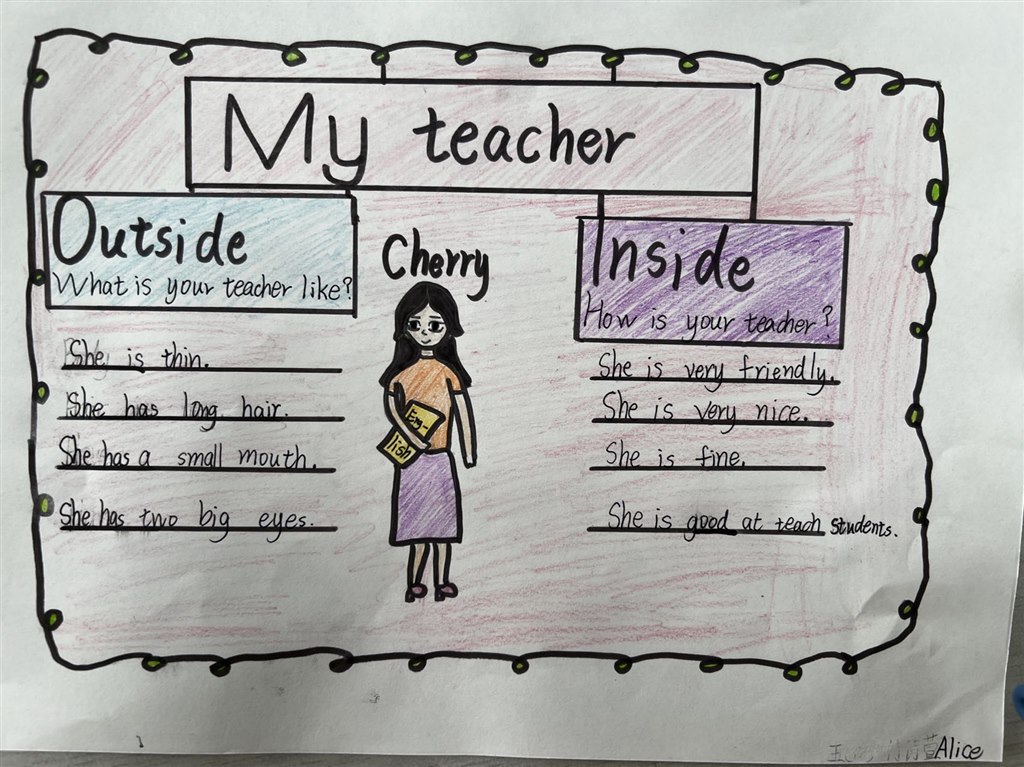 My teacher
Outside
What is your teacher like?
She is thin.
She has long hair.
She has a small mouth.
She has two big eyes.
Cherry
Eng-
lish
Inside
How is your teacher?
She is very friendly.
She is very nice.
She is fine.
She is good at teach students.
Alice